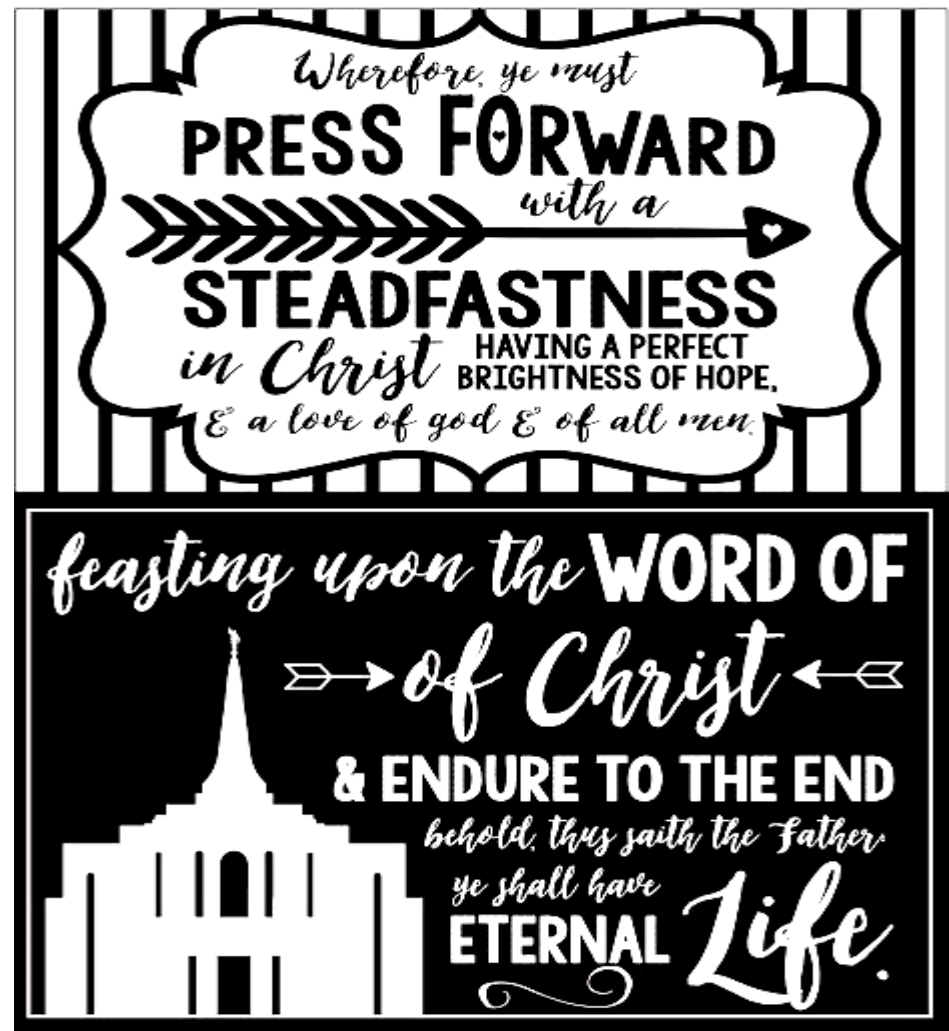 Wherefore, ye must
PRESS FORWARD
with a
STEADFASTNESS
in Christ HAVING A PERFECT
BRIGHTNESS OF HOPE,
& a love of god & of all men.
feasting upon the WORD OF
of Christ
& ENDURE TO THE END
behold, thus saith the Father:
ye shall have
ETERNAL Life.